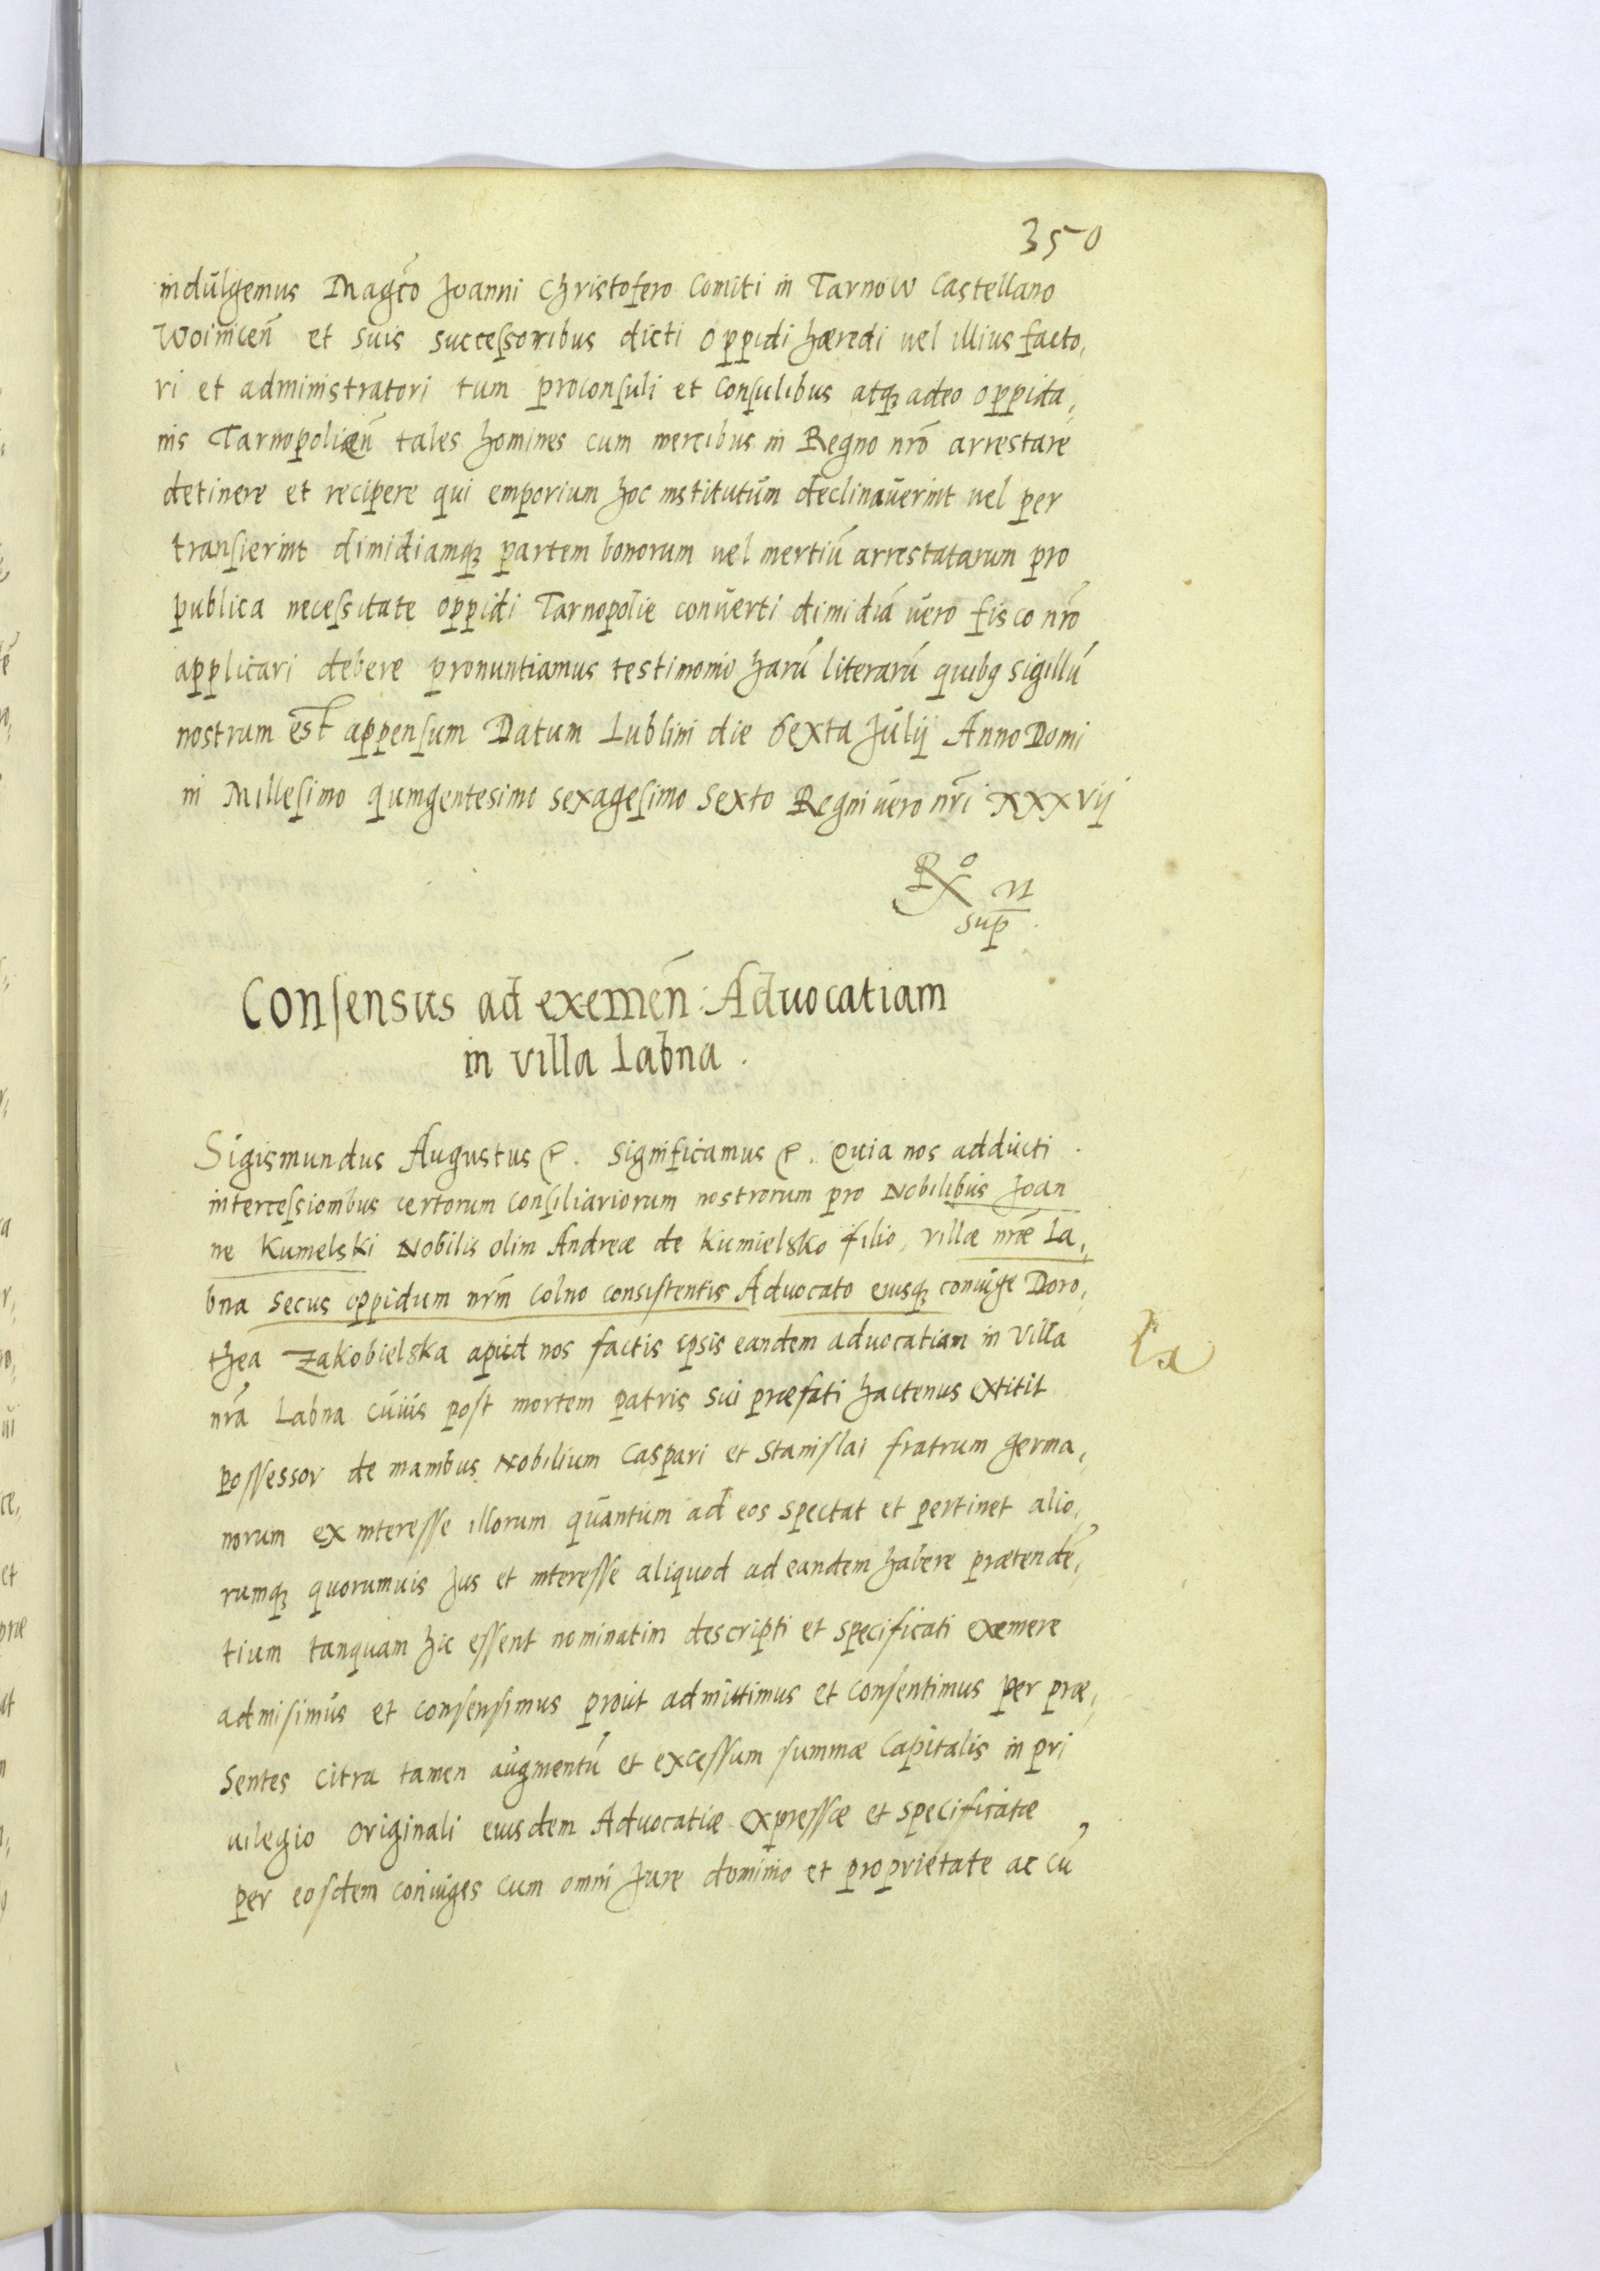 350
indulgemus Magco Joanni Christofero Comiti in Tarnow Castellano
Woinicen et suis successoribus dicti oppidi hæredi vel illius facto,
ri et administratori tum proconsuli et consulibus atq adeo oppida,
nis Tarnopolicen tales homines cum mercibus in Regno nro arrestare
detinere et recipere qui emporium hoc institutum declinauerint vel per
transierint dimidiamq partem bonorum vel mertiū arrestatarum pro
publica necessitate oppidi Tarnopolie conuerti dimidiā vero fisco nro
applicari debere pronuntiamus testimonio harū literarū quibq sigillū
nostrum est appensum Datum Lublini die sexta Julij Anno Domi
ni Millesimo quingentesimo sexagesimo sexto Regni vero nri XXXVij
Consensus ad exemen: Advocatiam
in villa Labna.
Sigismundus Augustus &. Significamus &. Quia nos adducti
intercessionibus certorum consiliariorum nostrorum pro Nobilibus Joan
ne Kumelski Nobilis olim Andreæ de Kumielsko filio, villæ nræ La,
bna secus oppidum nrm Colno consistentis Advocato eiusq coniuge Doro,
thea Zakobielska apud nos factis ipsis eandem advocatiam in villa
nra Labna cuius post mortem patris sui præfati hactenus extitit
possessor de manibus Nobilium Caspari et Stanislai fratrum germa,
norum ex interesse illorum quantum ad eos spectat et pertinet alio,
rumq quorumuis jus et interesse aliquod ad eandem habere prætendē,
tium tanquam hic essent nominatim descripti et specificati exemere
admisimus et consensimus prout admittimus et consentimus per præ,
sentes citra tamen augmentū et excessum summæ capitalis in pri
uilegio originali eiusdem Advocatiæ expressæ et specificatæ
per eosdem coniuges cum omni jure dominio et proprietate ac cū